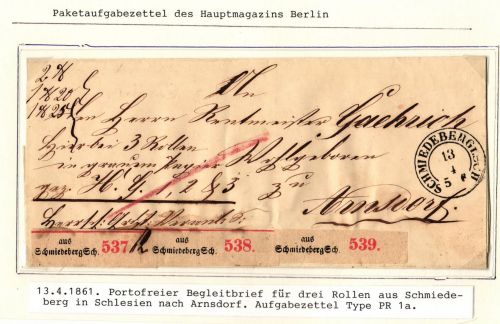 Paketaufgabezettel des Hauptmagazins Berlin
An
2 ℔
1 ℔ 20
1 ℔ 25
den Herrn Rentmeister Gaehrich
Hierbei 3 Rollen
in grauem Papier Wohlgeboren
gez. H. G. 1, 2 & 3 zu
Arnsdorf.
Herrsch.
SCHMIEDEBERG I/SCH
13
4
5
aus
Schmiedeberg Sch. 537
aus
Schmiedeberg Sch. 538.
aus
Schmiedeberg Sch. 539.
13.4.1861. Portofreier Begleitbrief für drei Rollen aus Schmiede-
berg in Schlesien nach Arnsdorf. Aufgabezettel Type PR 1a.